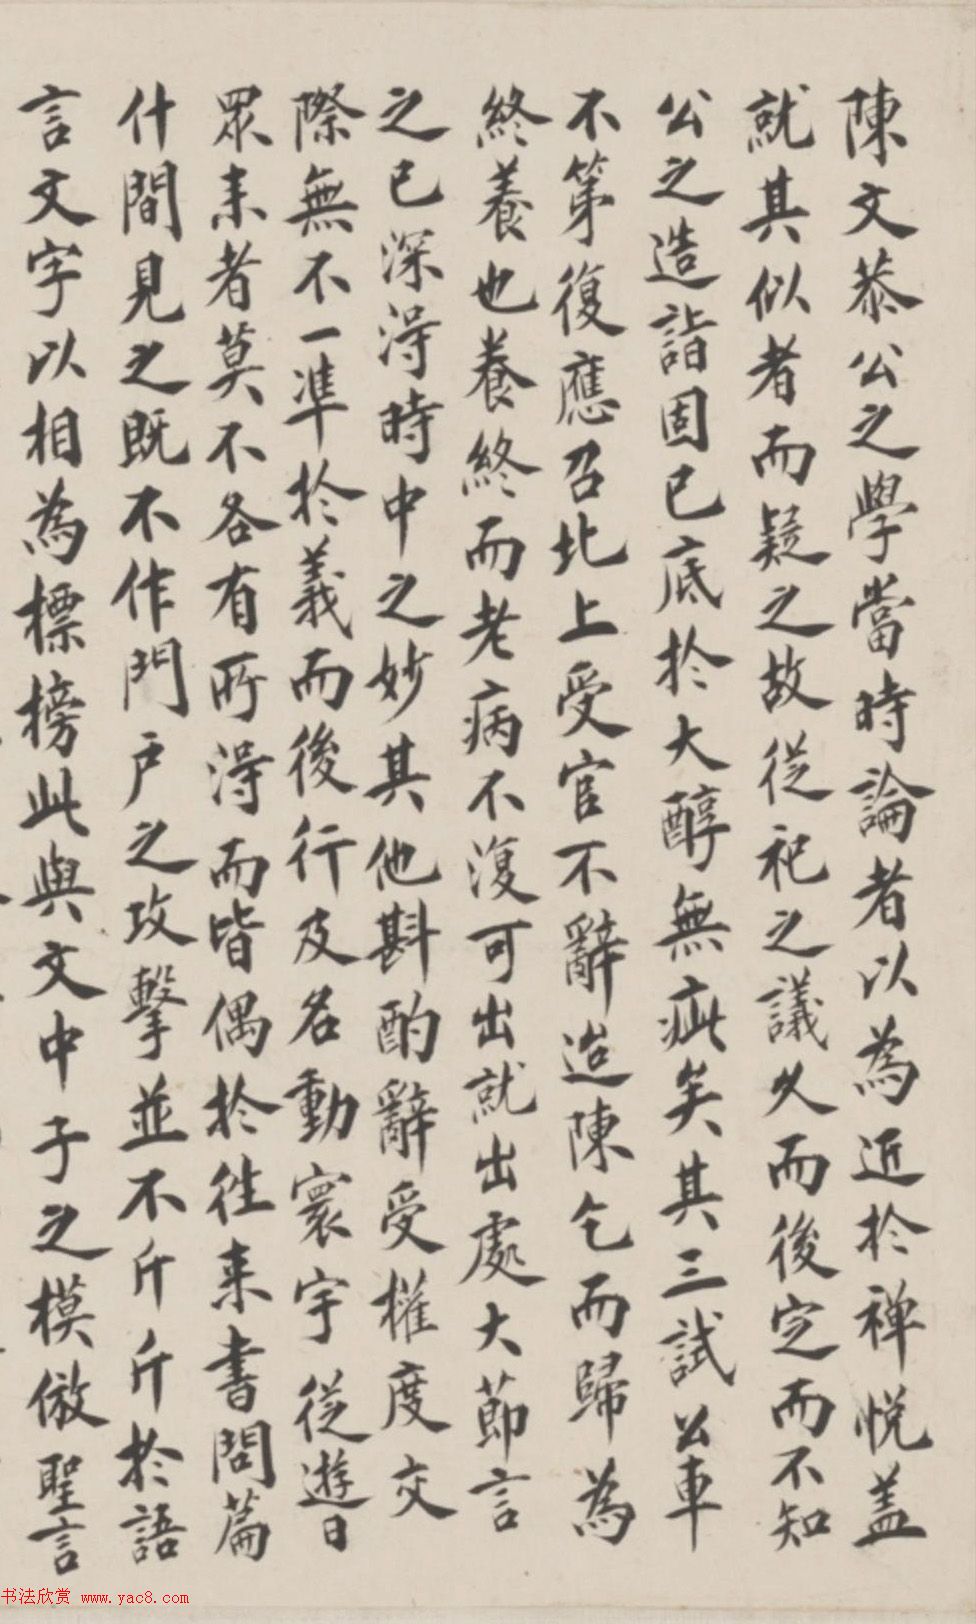 陳文恭公之學當時論者以為近於禅悦盖
就其似者而疑之故從祀之議久而後定而不知
公之造詣固已底於大醇無疵矣其三試公車
不第復應召北上受官不辭迨陳乞而歸為
終養也養終而老病不復可出就出處大節言
之已深得時中之妙其他斟酌辭受權度交
際無不一準於義而後行及名動寰宇從遊日
眾来者莫不各有所得而皆偶於往来書問篇
什間見之既不作門户之攻擊並不斤斤於語
言文字以相為標榜此與文中子之模倣聖言
书法欣赏 www.yac8.com